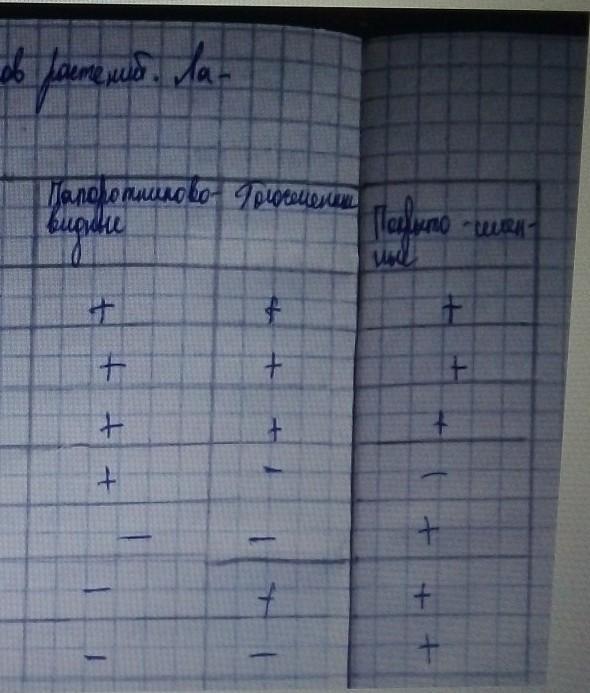 ов растений. Ла-
Папоротниково- Голосеменные
видные
Покрыто-семен-
ные
+ + +
+ + +
+ + +
+ - -
- - +
- + +
- - +